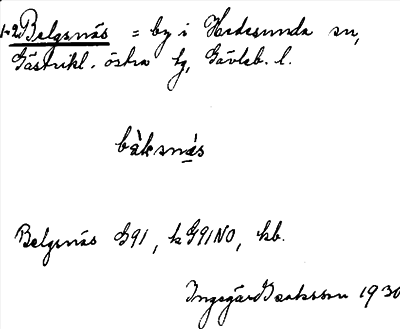 1-2 Balgsnäs = by i Hedesunda sn,
Gästrikl. östra tg, Gävleb. l.
bàksnás
Balgsnäs G91, k G91NO, kb.
Ingegärd Isaksson 1930